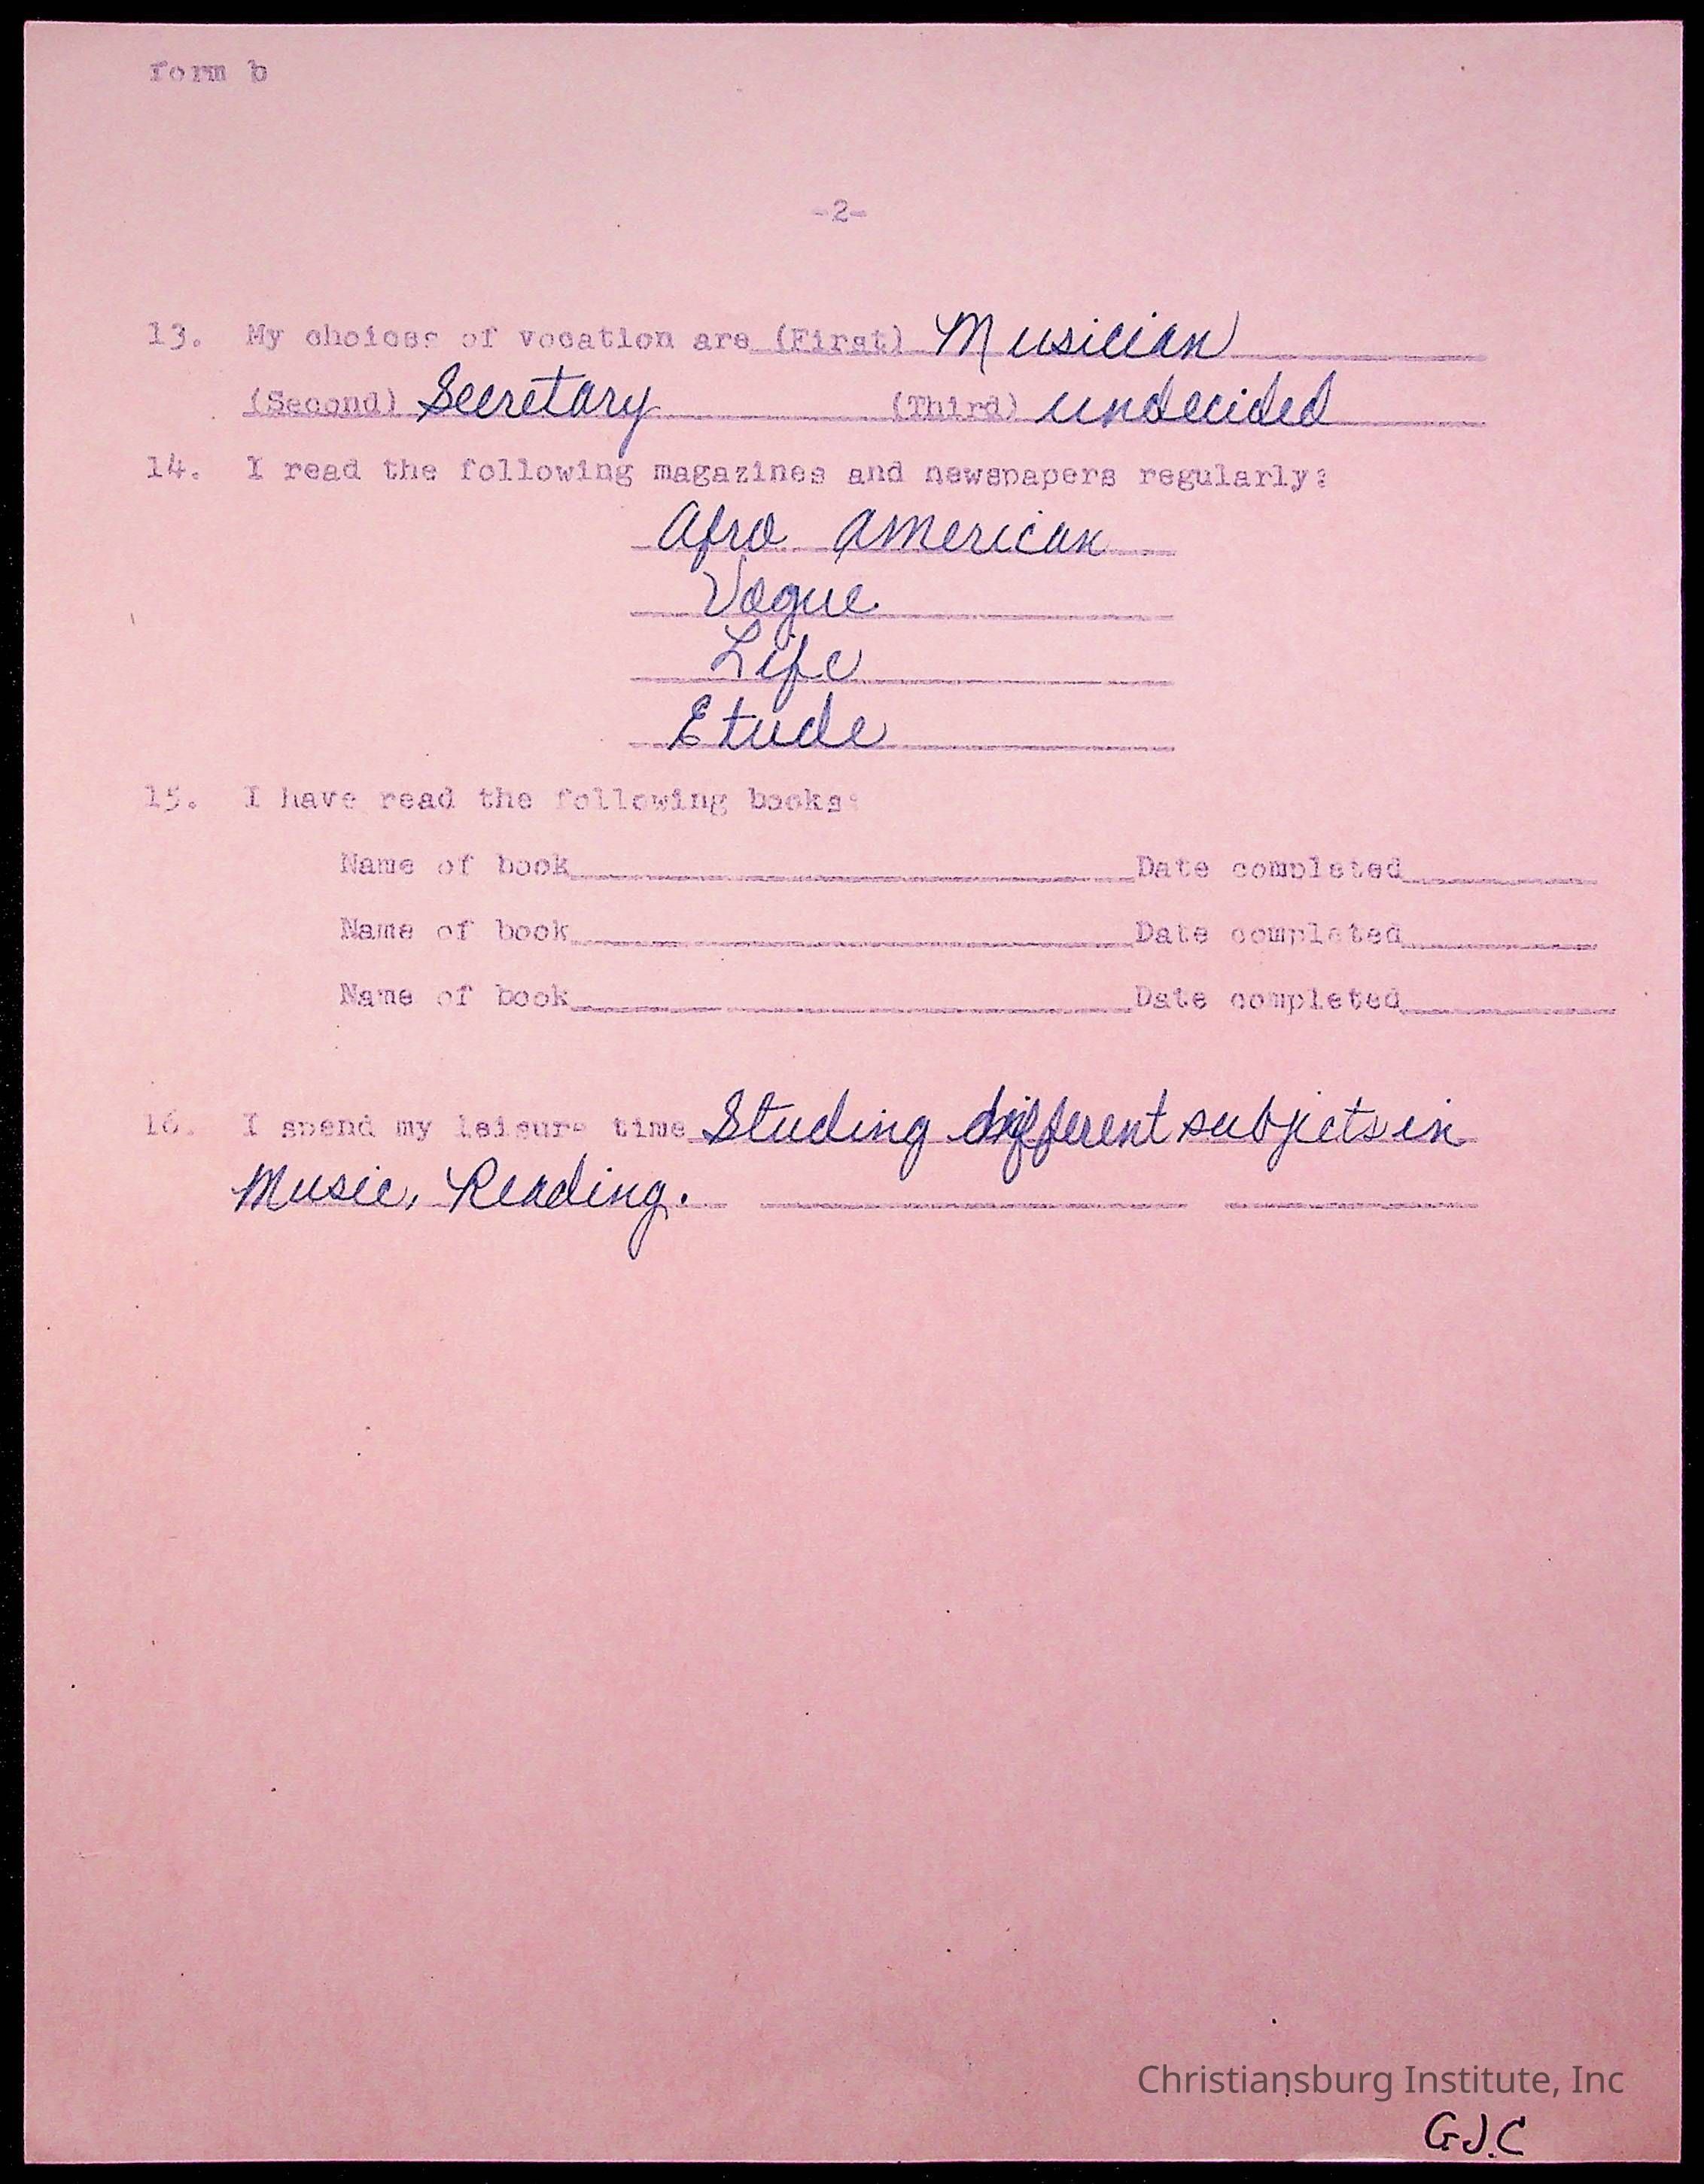 form b
-2-
13. My choices of vocation are (First) Musician
(Second) Secretary (Third) undecided
14. I read the following magazines and newspapers regularly:
Afro American
Vogue
Life
Etude
15. I have read the following books:
Name of book Date completed
Name of book Date completed
Name of book Date completed
16. I spend my leisure time Studing different subjects in
Music, Reading.
Christiansburg Institute, Inc
GJ.C